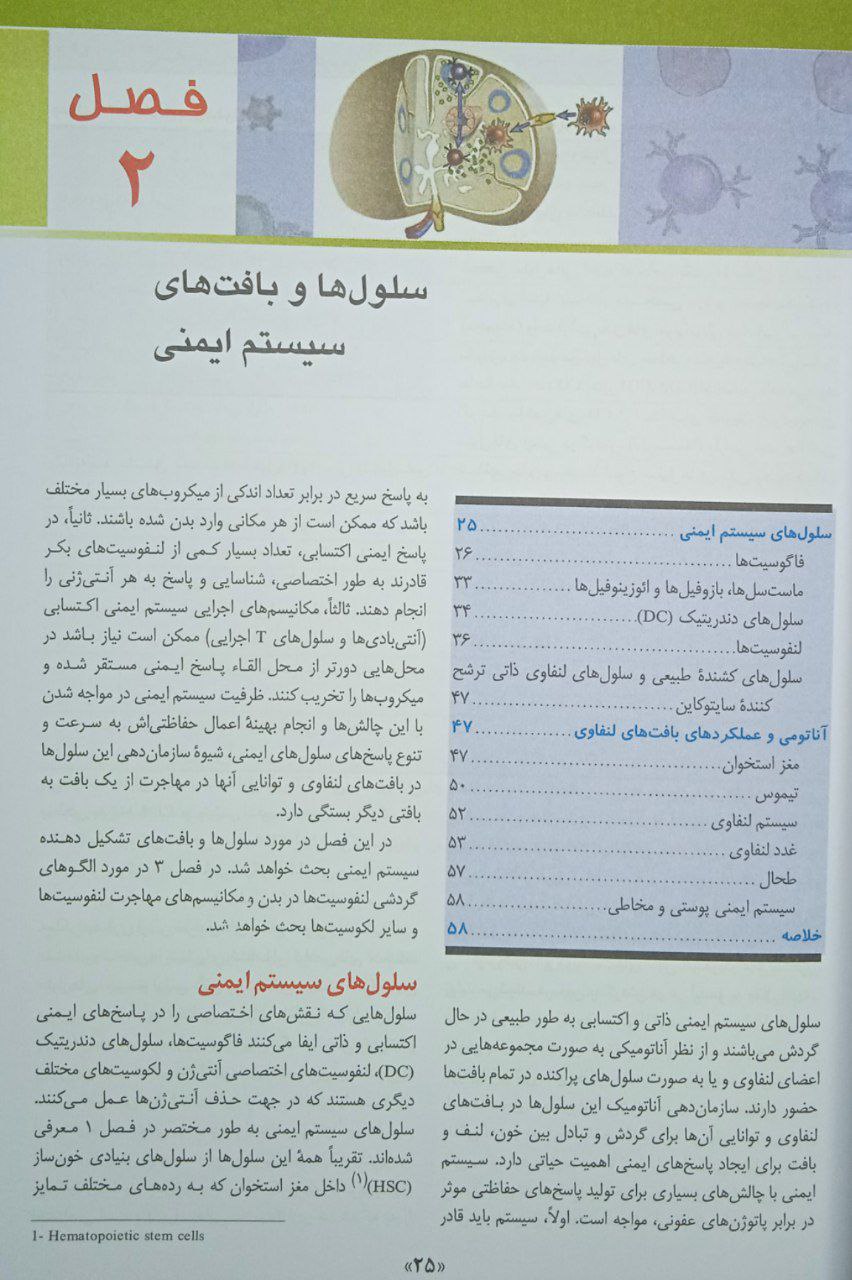 فصل
۲
سلول‌ها و بافت‌های
سیستم ایمنی
سلول‌های سیستم ایمنی ........................ ۲۵
فاگوسیت‌ها ........................ ۲۶
ماست‌سل‌ها، بازوفیل‌ها و ائوزینوفیل‌ها ............. ۳۳
سلول‌های دندریتیک (DC) ........................ ۳۴
لنفوسیت‌ها ........................ ۳۶
سلول‌های کشندهٔ طبیعی و سلول‌های لنفاوی ذاتی ترشح
کنندهٔ سایتوکاین ........................ ۴۷
آناتومی و عملکردهای بافت‌های لنفاوی ............. ۴۷
مغز استخوان ........................ ۴۷
تیموس ........................ ۵۰
سیستم لنفاوی ........................ ۵۲
غدد لنفاوی ........................ ۵۳
طحال ........................ ۵۷
سیستم ایمنی پوستی و مخاطی ........................ ۵۸
خلاصه ........................ ۵۸
سلول‌های سیستم ایمنی ذاتی و اکتسابی به طور طبیعی در حال
گردش می‌باشند و از نظر آناتومیکی به صورت مجموعه‌هایی در
اعضای لنفاوی و یا به صورت سلول‌های پراکنده در تمام بافت‌ها
حضور دارند. سازمان‌دهی آناتومیک این سلول‌ها در بافت‌های
لنفاوی و توانایی آن‌ها برای گردش و تبادل بین خون، لنف و
بافت برای ایجاد پاسخ‌های ایمنی اهمیت حیاتی دارد. سیستم
ایمنی با چالش‌های بسیاری برای تولید پاسخ‌های حفاظتی موثر
در برابر پاتوژن‌های عفونی، مواجه است. اولاً، سیستم باید قادر
به پاسخ سریع در برابر تعداد اندکی از میکروب‌های بسیار مختلف
باشد که ممکن است از هر مکانی وارد بدن شده باشند. ثانیاً، در
پاسخ ایمنی اکتسابی، تعداد بسیار کمی از لنفوسیت‌های بکر
قادرند به طور اختصاصی، شناسایی و پاسخ به هر آنتی‌ژنی را
انجام دهند. ثالثاً، مکانیسم‌های اجرایی سیستم ایمنی اکتسابی
(آنتی‌بادی‌ها و سلول‌های T اجرایی) ممکن است نیاز باشد در
محل‌هایی دورتر از محل القاء پاسخ ایمنی مستقر شده و
میکروب‌ها را تخریب کنند. ظرفیت سیستم ایمنی در مواجه شدن
با این چالش‌ها و انجام بهینهٔ اعمال حفاظتی‌اش به سرعت و
تنوع پاسخ‌های سلول‌های ایمنی، شیوهٔ سازمان‌دهی این سلول‌ها
در بافت‌های لنفاوی و توانایی آنها در مهاجرت از یک بافت به
بافتی دیگر بستگی دارد.
در این فصل در مورد سلول‌ها و بافت‌های تشکیل دهنده
سیستم ایمنی بحث خواهد شد. در فصل ۳ در مورد الگوهای
گردشی لنفوسیت‌ها در بدن و مکانیسم‌های مهاجرت لنفوسیت‌ها
و سایر لکوسیت‌ها بحث خواهد شد.
سلول‌های سیستم ایمنی
سلول‌هایی که نقش‌های اختصاصی را در پاسخ‌های ایمنی
اکتسابی و ذاتی ایفا می‌کنند فاگوسیت‌ها، سلول‌های دندریتیک
(DC)، لنفوسیت‌های اختصاصی آنتی‌ژن و لکوسیت‌های مختلف
دیگری هستند که در جهت حذف آنتی‌ژن‌ها عمل می‌کنند.
سلول‌های سیستم ایمنی به طور مختصر در فصل ۱ معرفی
شده‌اند. تقریباً همهٔ این سلول‌ها از سلول‌های بنیادی خون‌ساز
(HSC)(۱) داخل مغز استخوان که به رده‌های مختلف تمایز
1- Hematopoietic stem cells
«۲۵»